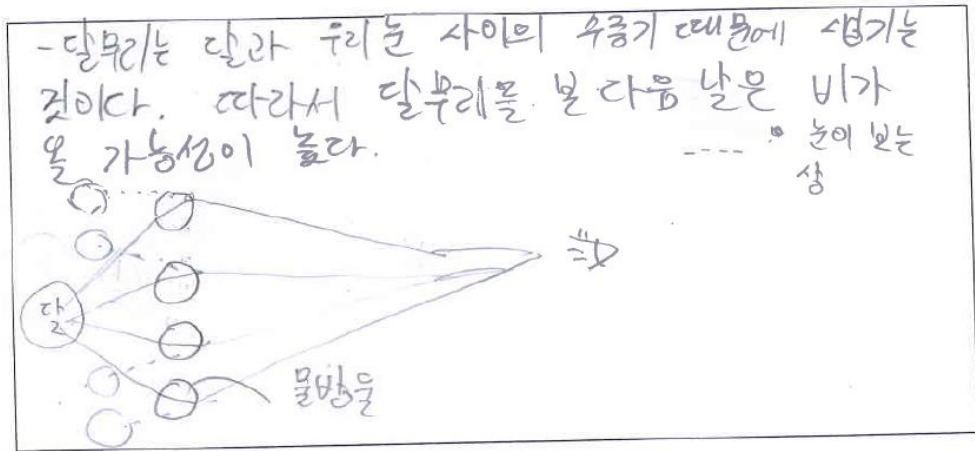 -달무리는 달과 우리 눈 사이의 수증기 때문에 생기는
것이다. 따라서 달무리를 본 다음 날은 비가
올 가능성이 높다.
---- : 눈이 보는
상
달
물방울